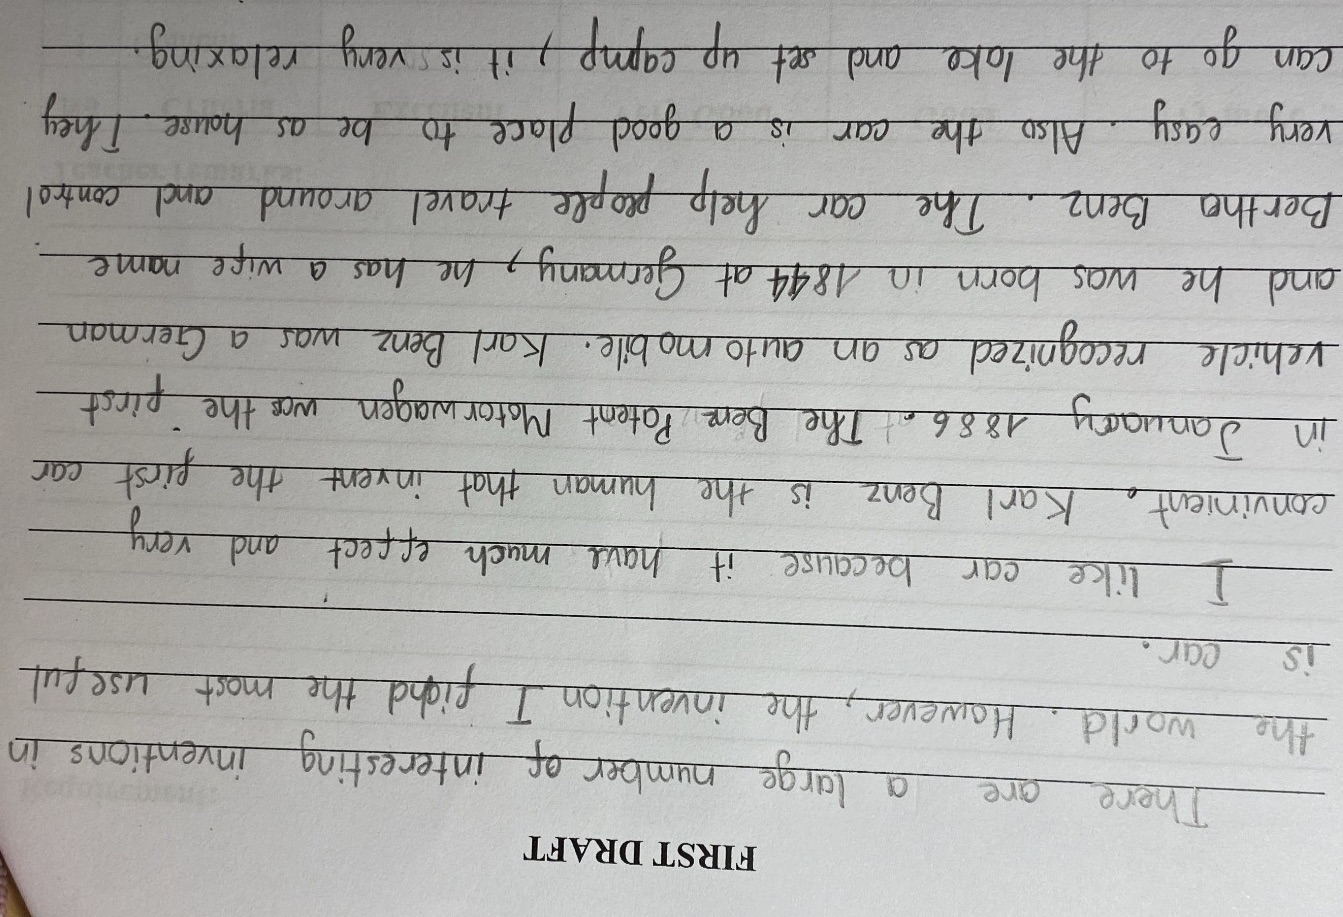 FIRST DRAFT
There are a large number of interesting inventions in
the world. However, the invention I find the most useful
is car.
I like car because it have much effect and very
convinient. Karl Benz is the human that invent the first car
in January 1886. The Benz Patent Motorwagen was the first
vehicle recognized as an automobile. Karl Benz was a German
and he was born in 1844 at Germany, he has a wife name
Bertha Benz. The car help people travel around and control
very easy. Also the car is a good place to be as house. They
can go to the lake and set up camp, it is very relaxing.